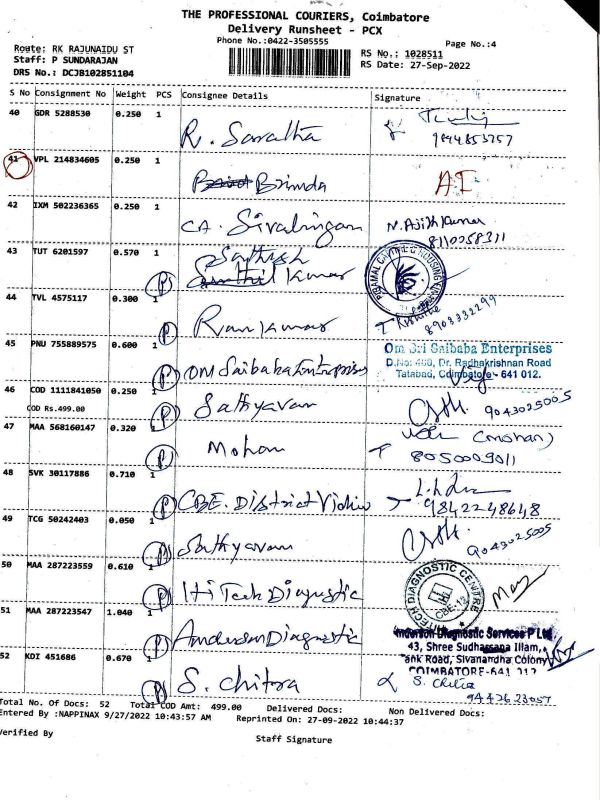 THE PROFESSIONAL COURIERS, Coimbatore
Delivery Runsheet - PCX
Phone No.:0422-3505555
Page No.:4
Route: RK RAJUNAIDU ST
Staff: P SUNDARAJAN
DRS No.: DCJB102851104
RS No.: 1028511
RS Date: 27-Sep-2022
S No Consignment No Weight PCS Consignee Details Signature
40 GDR 5288530 0.250 1
R. Saratha
9894853757
41 VPL 214834605 0.250 1
Brimda A.I
42 IXM 502236365 0.250 1
CA. Sivalingam N. Ajith Kumar
8110058311
43 TUT 6201597 0.570 1
Sathish Kumar
P
PIRAMAL CAPITAL & HOUSING
44 TVL 4575117 0.300 1
P Ramkumar
8903332299
45 PNU 755889575 0.600 1
P OM Saibaba Enterprises
Om Sri Saibaba Enterprises
D.No: 400, Dr. Radhakrishnan Road
Tatabad, Coimbatore - 641 012.
46 COD 1111841050 0.250 1
COD Rs.499.00
P Sathyavan 9043025005
47 MAA 568160147 0.320 1
P Mohan (mohan)
8050009011
48 SVK 30117886 0.710 1
P CBE. District
9842248648
49 TCG 50242403 0.050 1
P Sathyavan 9043025005
50 MAA 287223559 0.610 1
P Hi Tech Diagnostic
TECH DIAGNOSTIC CENTRE
CBE-12
51 MAA 287223547 1.040 1
P Anderson Diagnostic
Anderson Diagnostic Services P Ltd
43, Shree Sudharsana Illam,
ank Road, Sivanandha Colony
COIMBATORE-641 012
52 KDI 451686 0.670 1
P S. Chitra S. Chitra
9442623057
Total No. of Docs: 52 Total COD Amt: 499.00 Delivered Docs: Non Delivered Docs:
Entered By :NAPPINAX 9/27/2022 10:43:57 AM Reprinted On: 27-09-2022 10:44:37
Verified By
Staff Signature